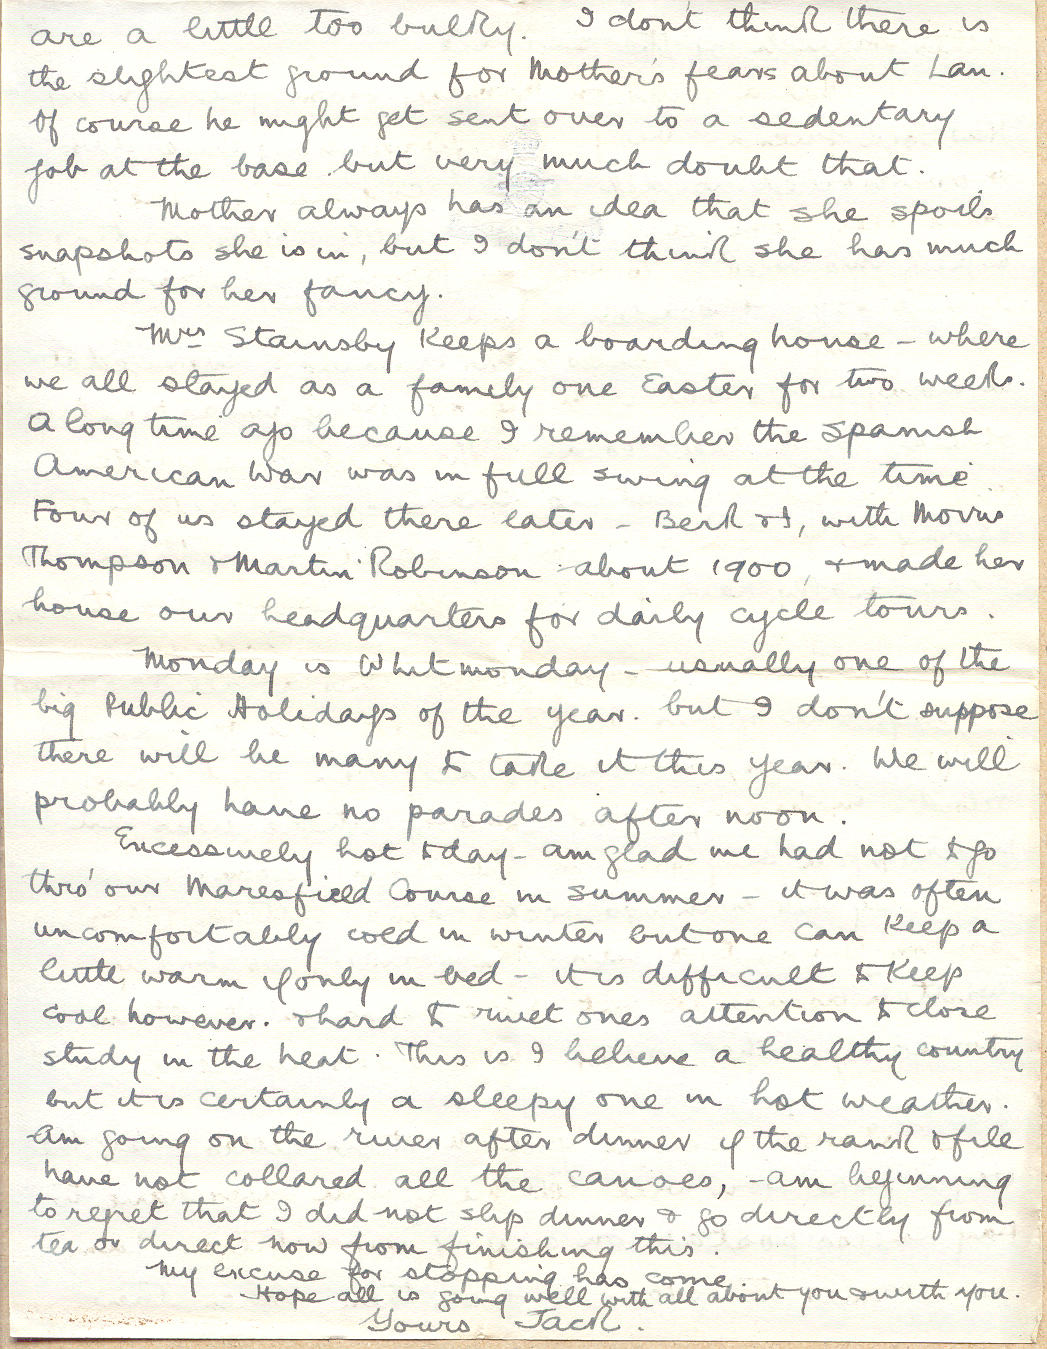 are a little too bulky. I don't think there is
the slightest ground for Mother's fears about Lan.
Of course he might get sent over to a sedentary
job at the base but very much doubt that.
Mother always has an idea that she spoils
snapshots she is in, but I don't think she has much
ground for her fancy.
Mrs Stainsby keeps a boarding house - where
we all stayed as a family one Easter for two weeks.
A long time ago because I remember the Spanish
American War was in full swing at the time
Four of us stayed there later - Berk & I, with Morris
Thompson & Martin Robinson about 1900, & made her
house our headquarters for daily cycle tours.
Monday is Whitmonday - usually one of the
big Public Holidays of the year. but I don't suppose
there will be many to take it this year. We will
probably have no parades after noon.
Excessively hot today - am glad we had not to go
thro' our Maresfield Course in summer - it was often
uncomfortably cold in winter but one can keep a
little warm if only in bed - it is difficult to keep
cool however. & hard to rivet ones attention to close
study in the heat. This is I believe a healthy country
but it is certainly a sleepy one in hot weather.
Am going on the river after dinner if the rank & file
have not collared all the canoes, - am beginning
to regret that I did not slip dinner & go directly from
tea or direct now from finishing this.
My excuse for stopping has come.
Hope all is going well with all about you & with you.
Yours Jack.